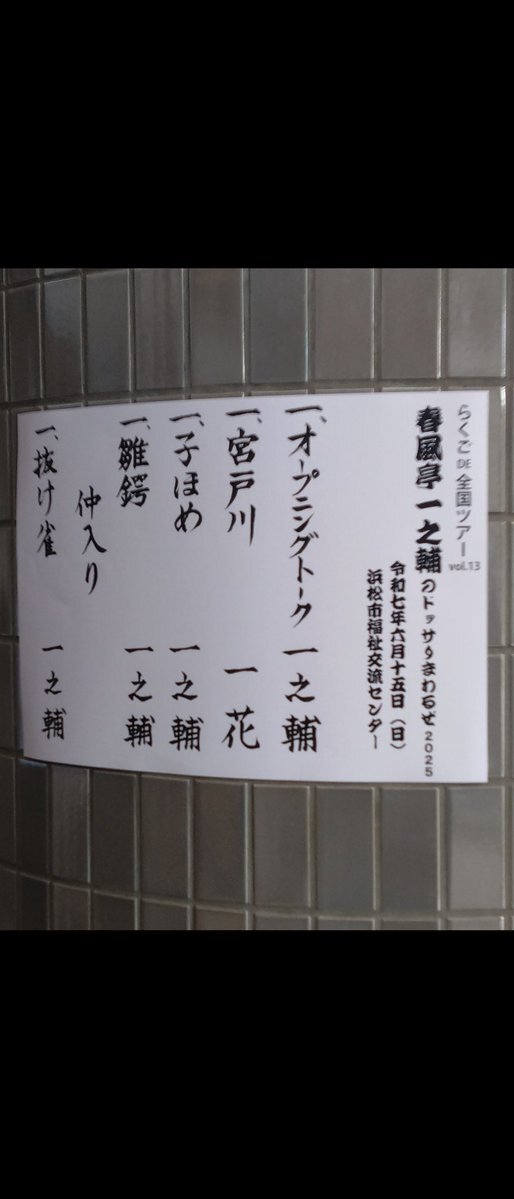 らくご DE 全国ツアー vol.13
春風亭一之輔のドッサりまわるぜ2025
令和七年六月十五日（日）
浜松市福祉交流センター
一、オープニングトーク 一之輔
一、宮戸川 一花
一、子ほめ 一之輔
一、雛鍔 一之輔
仲入り
一、抜け雀 一之輔